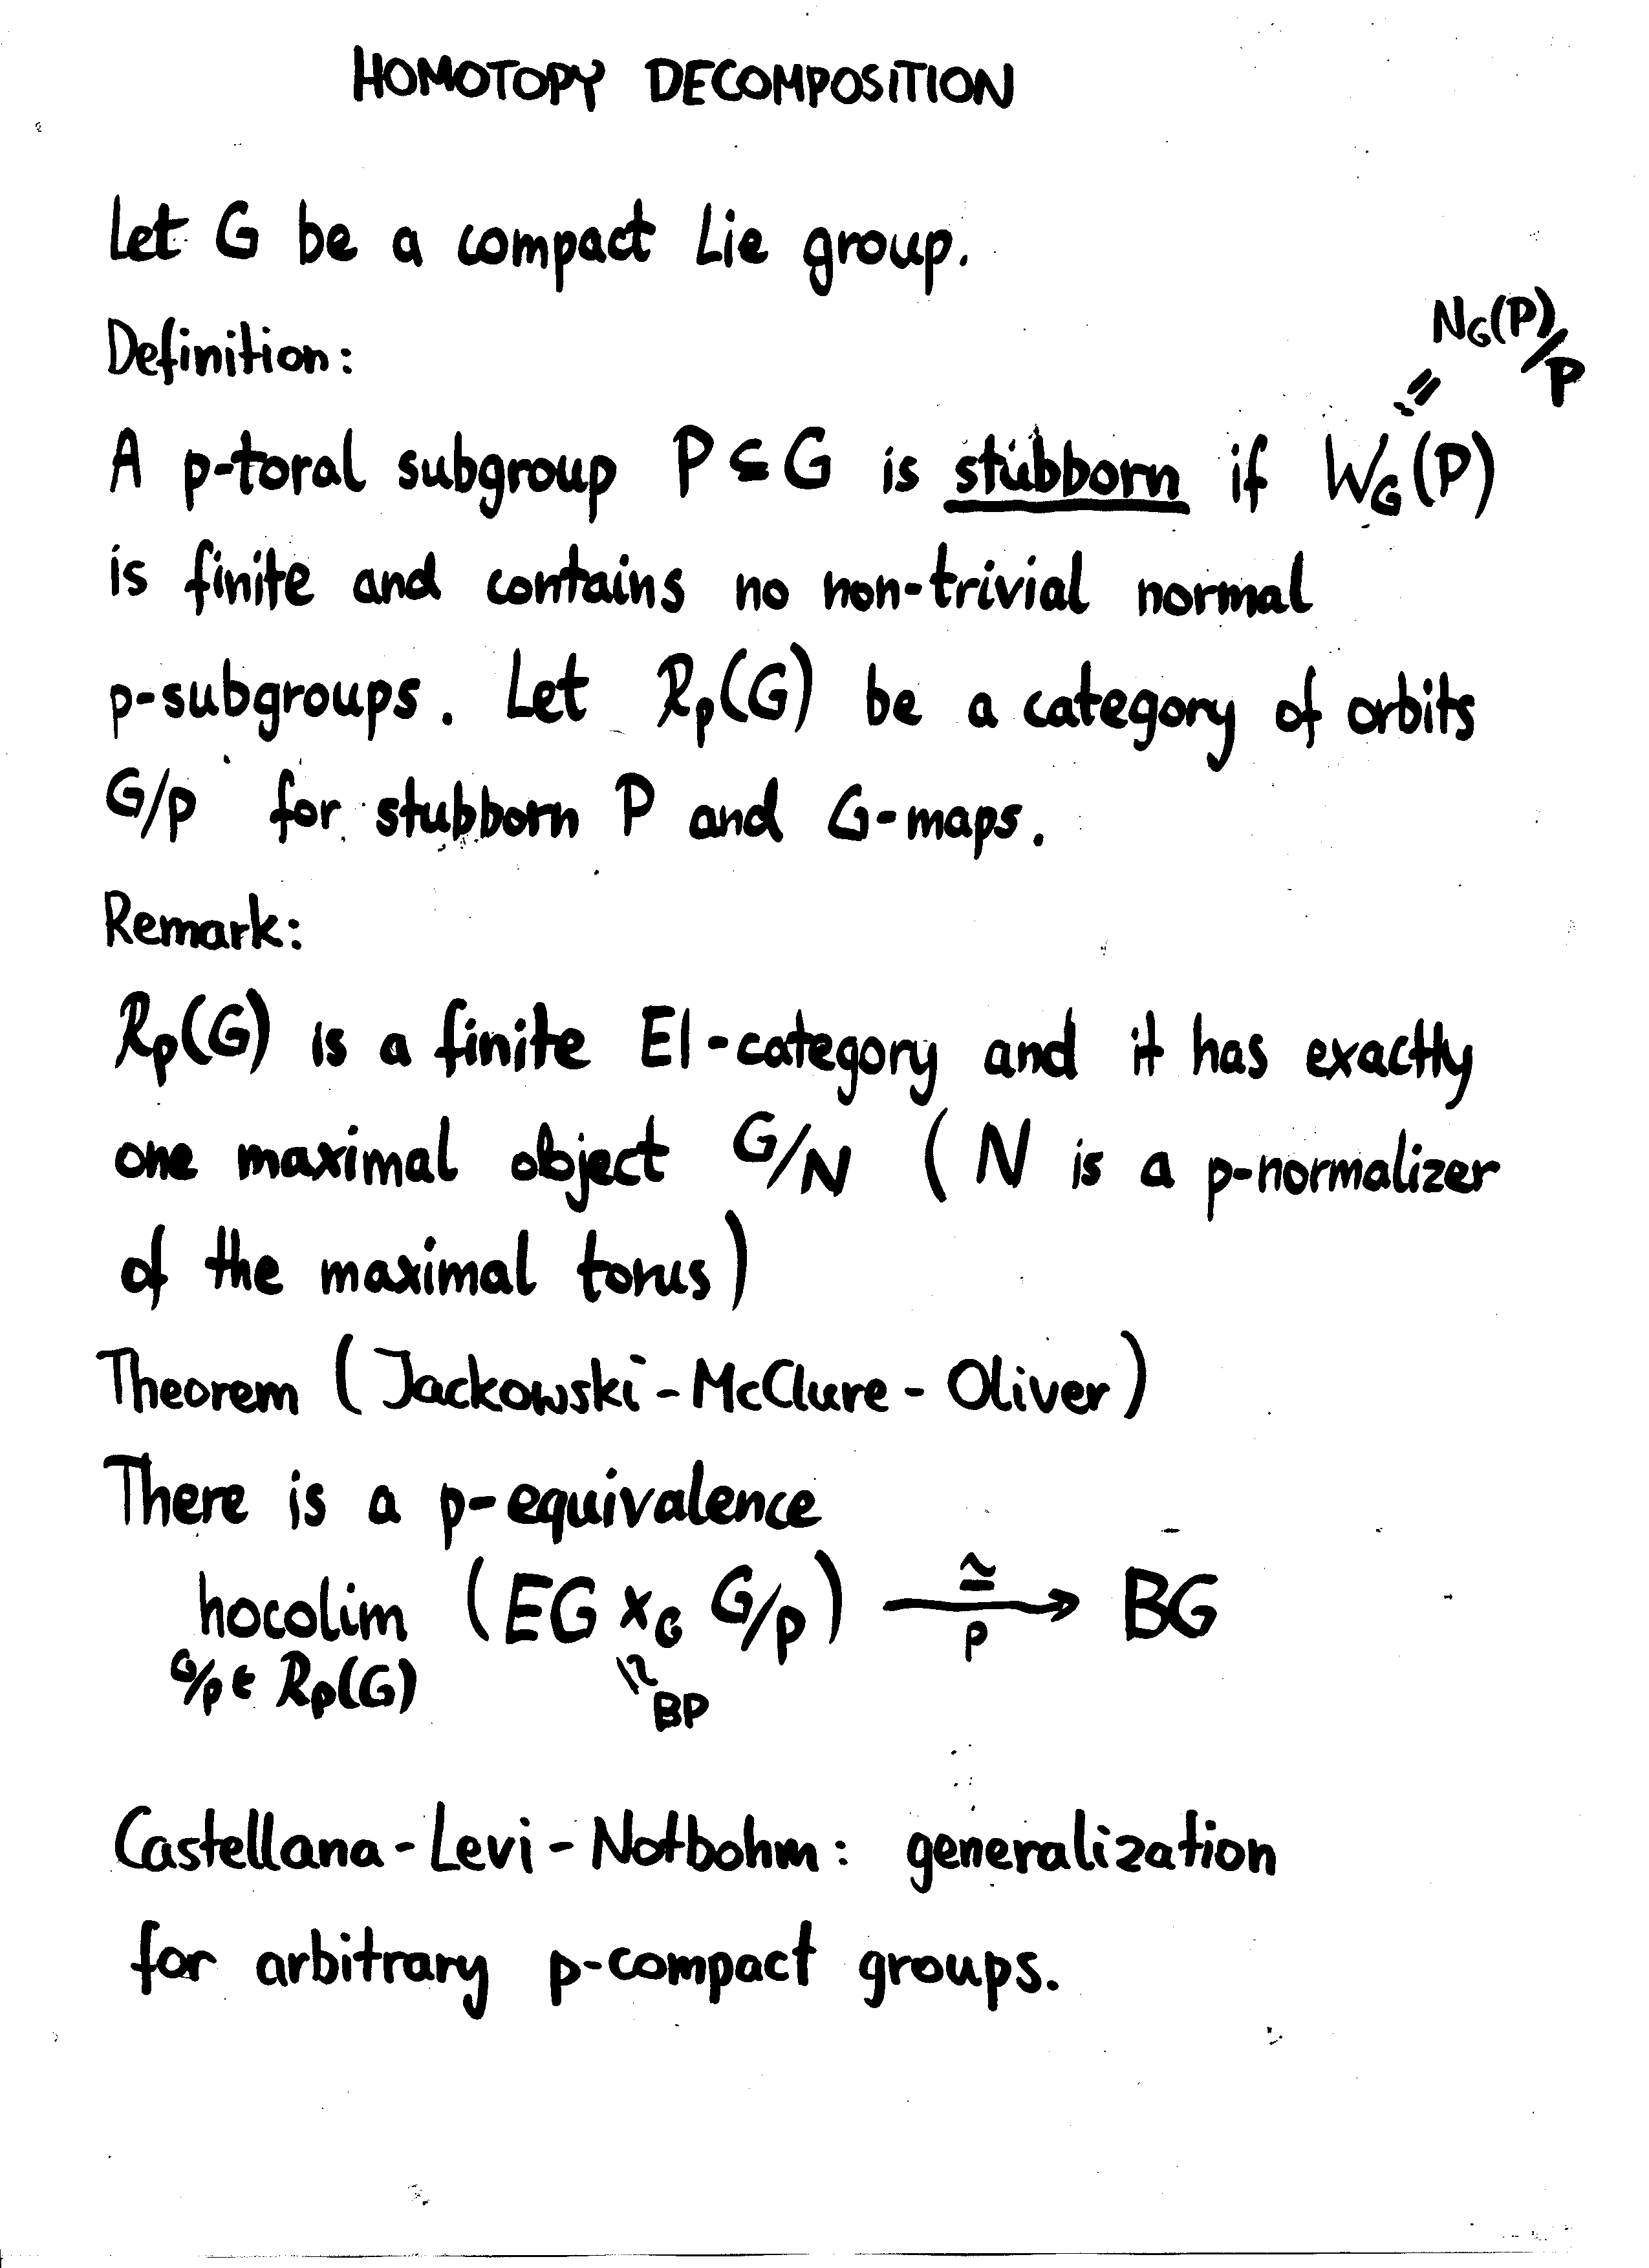 HOMOTOPY DECOMPOSITION
Let G be a compact Lie group.
Definition:
N_G(P)/P
=
A p-toral subgroup P ⊆ G is stubborn if W_G(P)
is finite and contains no non-trivial normal
p-subgroups. Let R_p(G) be a category of orbits
G/P for stubborn P and G-maps.
Remark:
R_p(G) is a finite EI-category and it has exactly
one maximal object G/N (N is a p-normalizer
of the maximal torus)
Theorem (Jackowski-McClure-Oliver)
There is a p-equivalence
hocolim (EG ×_G G/P) ≃→_p BG
G/P ∈ R_p(G) ≃ BP
Castellana-Levi-Notbohm: generalization
for arbitrary p-compact groups.